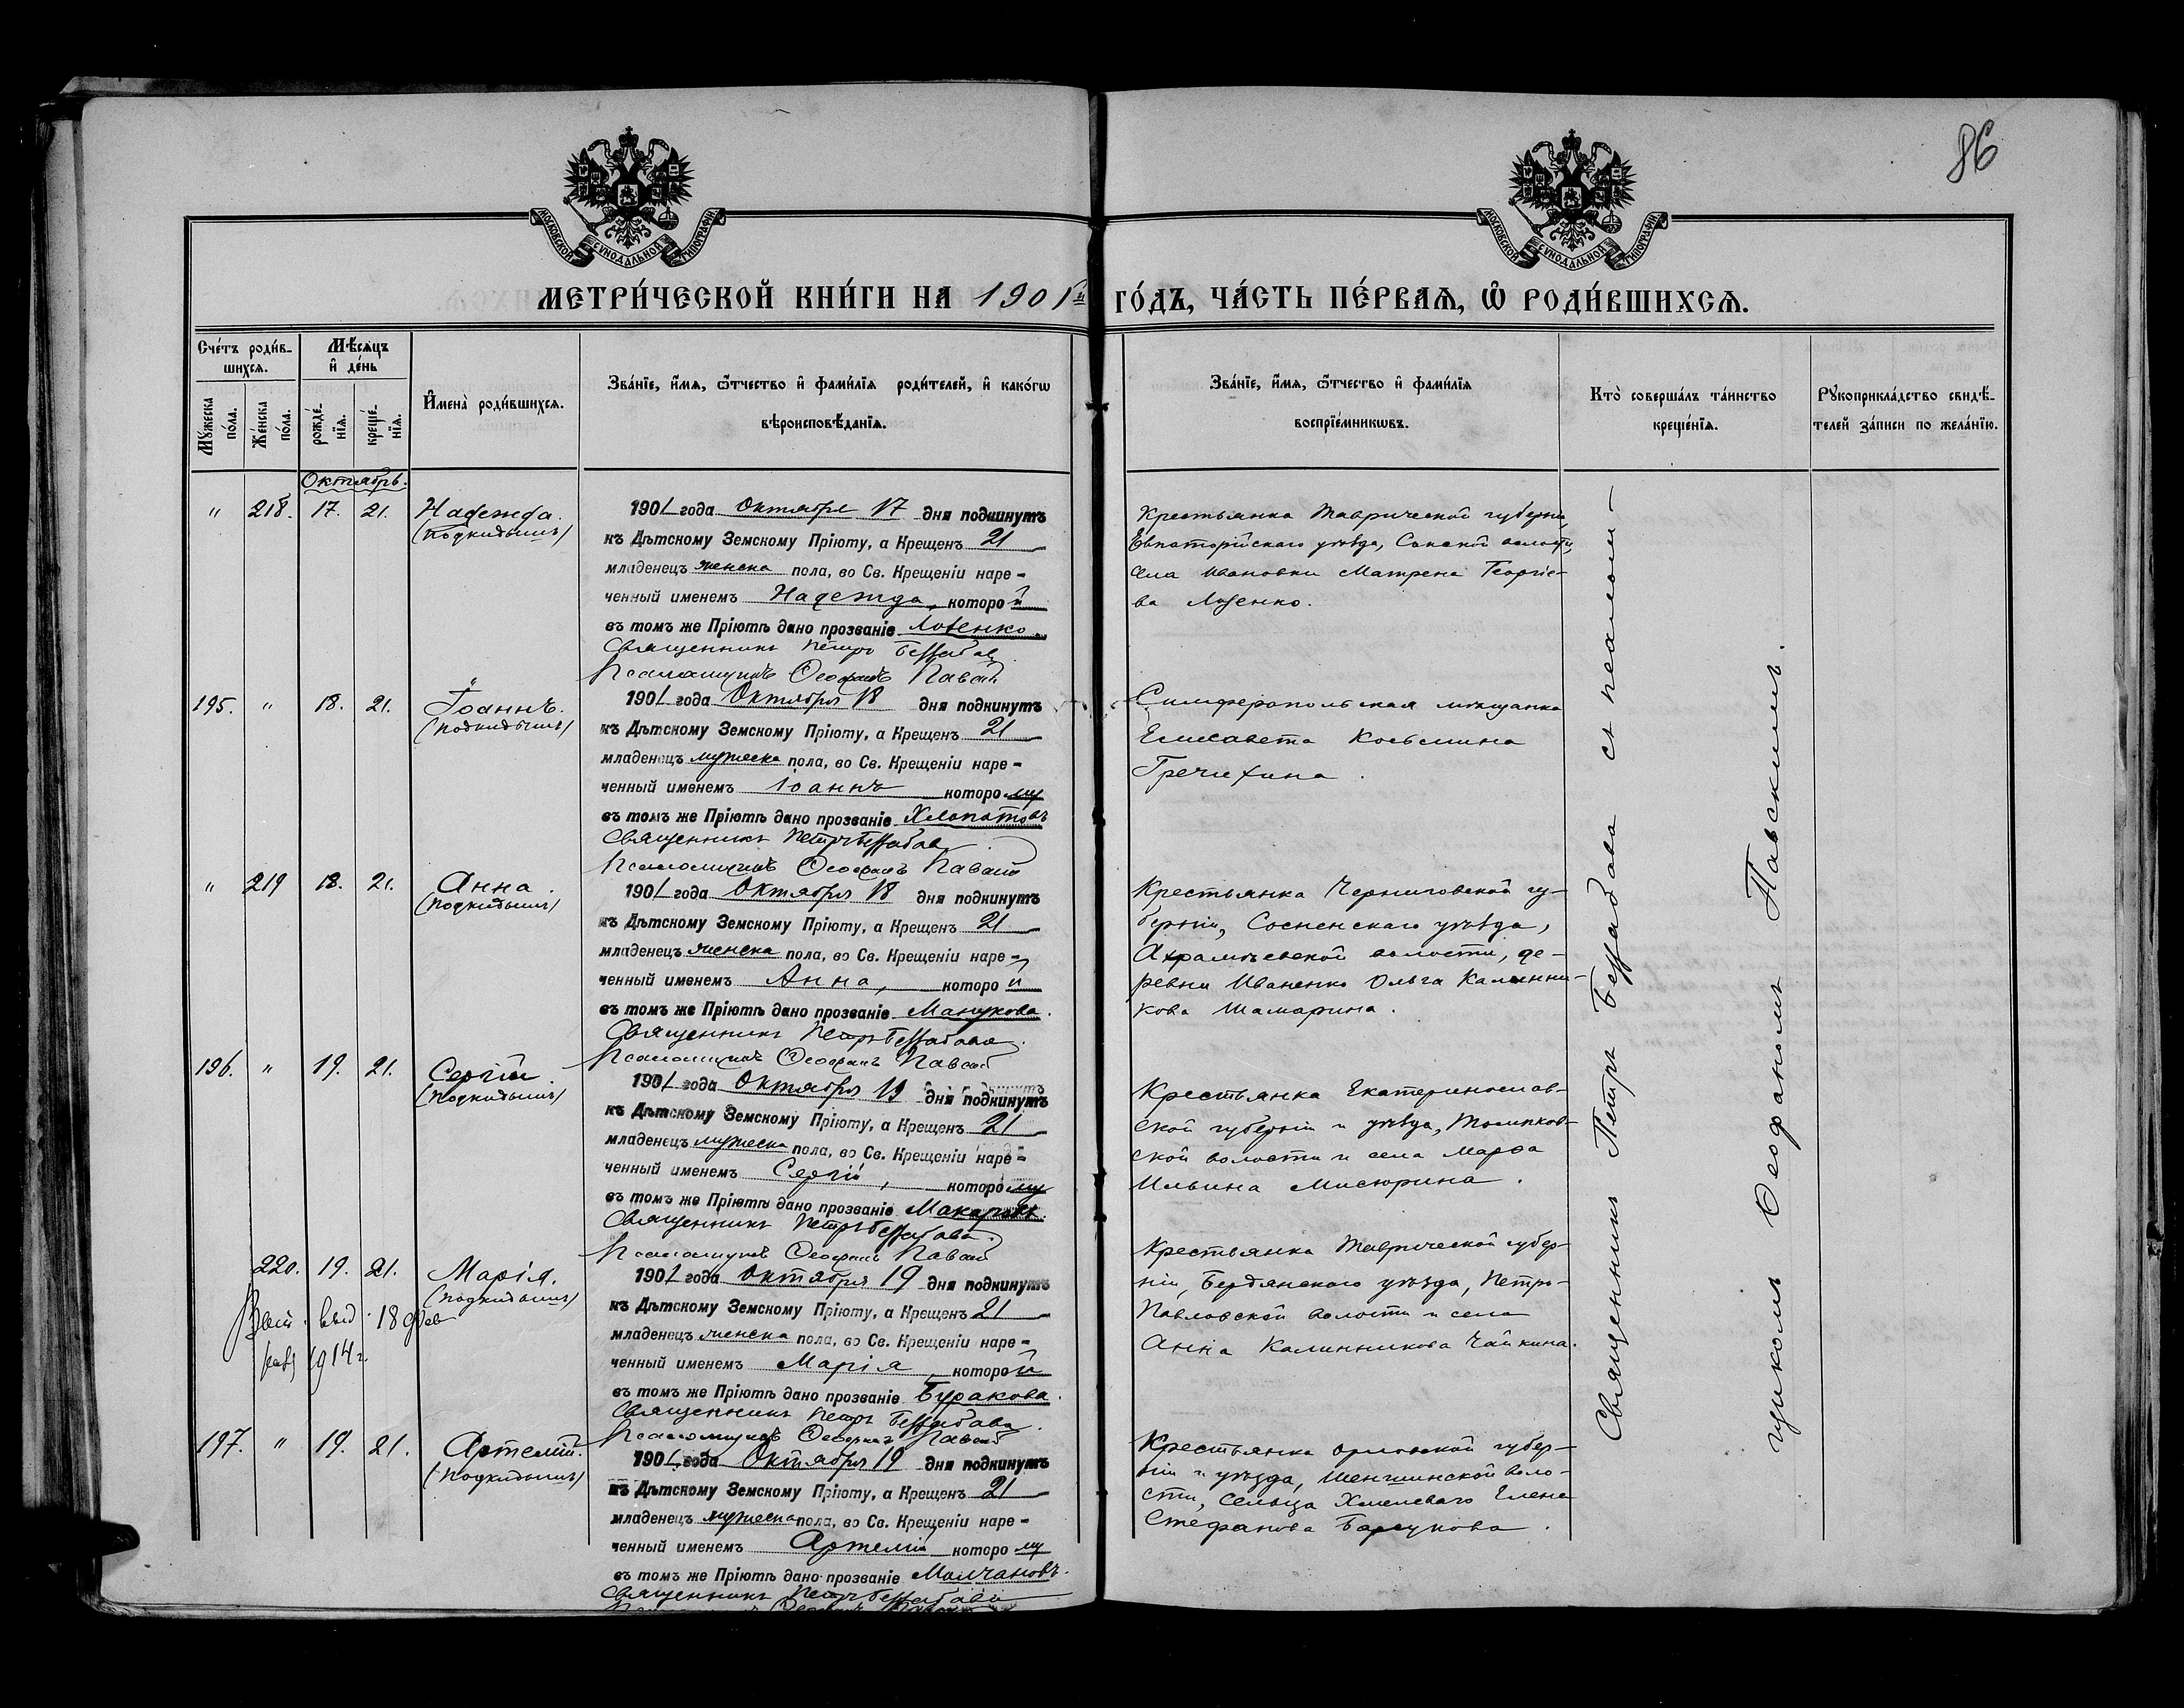 86
МОСКОВСКОЙ СѴНОДАЛЬНОЙ ТИПОГРАФІИ
МОСКОВСКОЙ СѴНОДАЛЬНОЙ ТИПОГРАФІИ
МЕТРИ́ЧЕСКОЙ КНИ́ГИ НА 1901й ГО́ДЪ, ЧА́СТЬ ПЕ́РВАѦ, Ѡ҆ РОДИ́ВШИХСѦ.
Сче́тъ роди́в-
шихсѧ.
Мѣ́сѧцъ
и҆ де́нь
Мꙋ́жеска по́ла.
Же́нска по́ла.
рожде́-
нїѧ.
креще́-
нїѧ.
И҆мена̀ роди́вшихсѧ.
Зва́нїе, и҆́мѧ, ѻ҆́тчество и҆ фами́лїѧ роди́телей, и҆ како́гѡ
вѣроисповѣ́данїѧ.
Зва́нїе, и҆́мѧ, ѻ҆́тчество и҆ фами́лїѧ
воспрїе́мникѡвъ.
Кто̀ соверша́лъ та́инство
креще́нїѧ.
Рꙋкоприкла́дство свидѣ́-
телей за́писи по жела́нїю.
Октябрь.
" 218. 17. 21. Надежда.
(подкидышъ)
1901 года Октября 17 дня подкинутъ
къ Дѣтскому Земскому Пріюту, а Крещенъ 21
младенецъ женска пола, во Св. Крещеніи наре-
ченный именемъ Надежда, которой
въ томъ же Пріютѣ дано прозваніе Лозенко.
Священникъ Петръ
Псаломщикъ Ѳеофанъ
Крестьянка Таврической губерніи,
Евпаторійскаго уѣзда, Сакской волости,
села Ивановки Матрена Георгіе-
ва Лозенко.
195. " 18. 21. Іоаннъ.
(подкидышъ)
1901 года Октября 18 дня подкинутъ
къ Дѣтскому Земскому Пріюту, а Крещенъ 21
младенецъ мужеска пола, во Св. Крещеніи наре-
ченный именемъ Іоаннъ которому
въ томъ же Пріютѣ дано прозваніе Хлопотовъ
Священникъ Петръ
Псаломщикъ Ѳеофанъ
Симферопольская мѣщанка
Елисавета Косьмина
Гречихина.
" 219 18. 21. Анна.
(подкидышъ)
1901 года Октября 18 дня подкинутъ
къ Дѣтскому Земскому Пріюту, а Крещенъ 21
младенецъ женска пола, во Св. Крещеніи наре-
ченный именемъ Анна, которой
въ томъ же Пріютѣ дано прозваніе Манукова.
Священникъ Петръ
Псаломщикъ Ѳеофанъ
Крестьянка Черниговской гу-
берніи, Сосненскаго уѣзда,
волости, де-
ревни Иваненко Ольга Калинни-
кова Шамарина.
196. " 19. 21. Сергій.
(подкидышъ)
1901 года Октября 19 дня подкинутъ
къ Дѣтскому Земскому Пріюту, а Крещенъ 21
младенецъ мужеска пола, во Св. Крещеніи наре-
ченный именемъ Сергій, которому
въ томъ же Пріютѣ дано прозваніе
Священникъ Петръ
Псаломщикъ Ѳеофанъ
Крестьянка Екатеринослав-
ской губерніи и уѣзда,
ской волости и села Марѳа
Ильина Мисюрина.
220. 19. 21. Марія.
(подкидышъ)
выд. 18 фев
1914 г.
1901 года Октября 19 дня подкинутъ
къ Дѣтскому Земскому Пріюту, а Крещенъ 21
младенецъ женска пола, во Св. Крещеніи наре-
ченный именемъ Марія которой
въ томъ же Пріютѣ дано прозваніе Буракова.
Священникъ Петръ
Псаломщикъ Ѳеофанъ
Крестьянка Таврической губер-
ніи, Бердянскаго уѣзда, Петро-
Павловской волости и села
Анна Калинникова Чайкина.
197. " 19. 21. Артемій.
(подкидышъ)
1901 года Октября 19 дня подкинутъ
къ Дѣтскому Земскому Пріюту, а Крещенъ 21
младенецъ мужеска пола, во Св. Крещеніи наре-
ченный именемъ Артемій которому
въ томъ же Пріютѣ дано прозваніе Молчановъ.
Священникъ Петръ
Крестьянка Орловской губер-
ніи и уѣзда, Шеншинской воло-
сти, сельца Хмелеваго Елена
Стефанова Барсукова.
Священникъ Петръ съ псалом-
щикомъ Ѳеофаномъ Павскимъ.